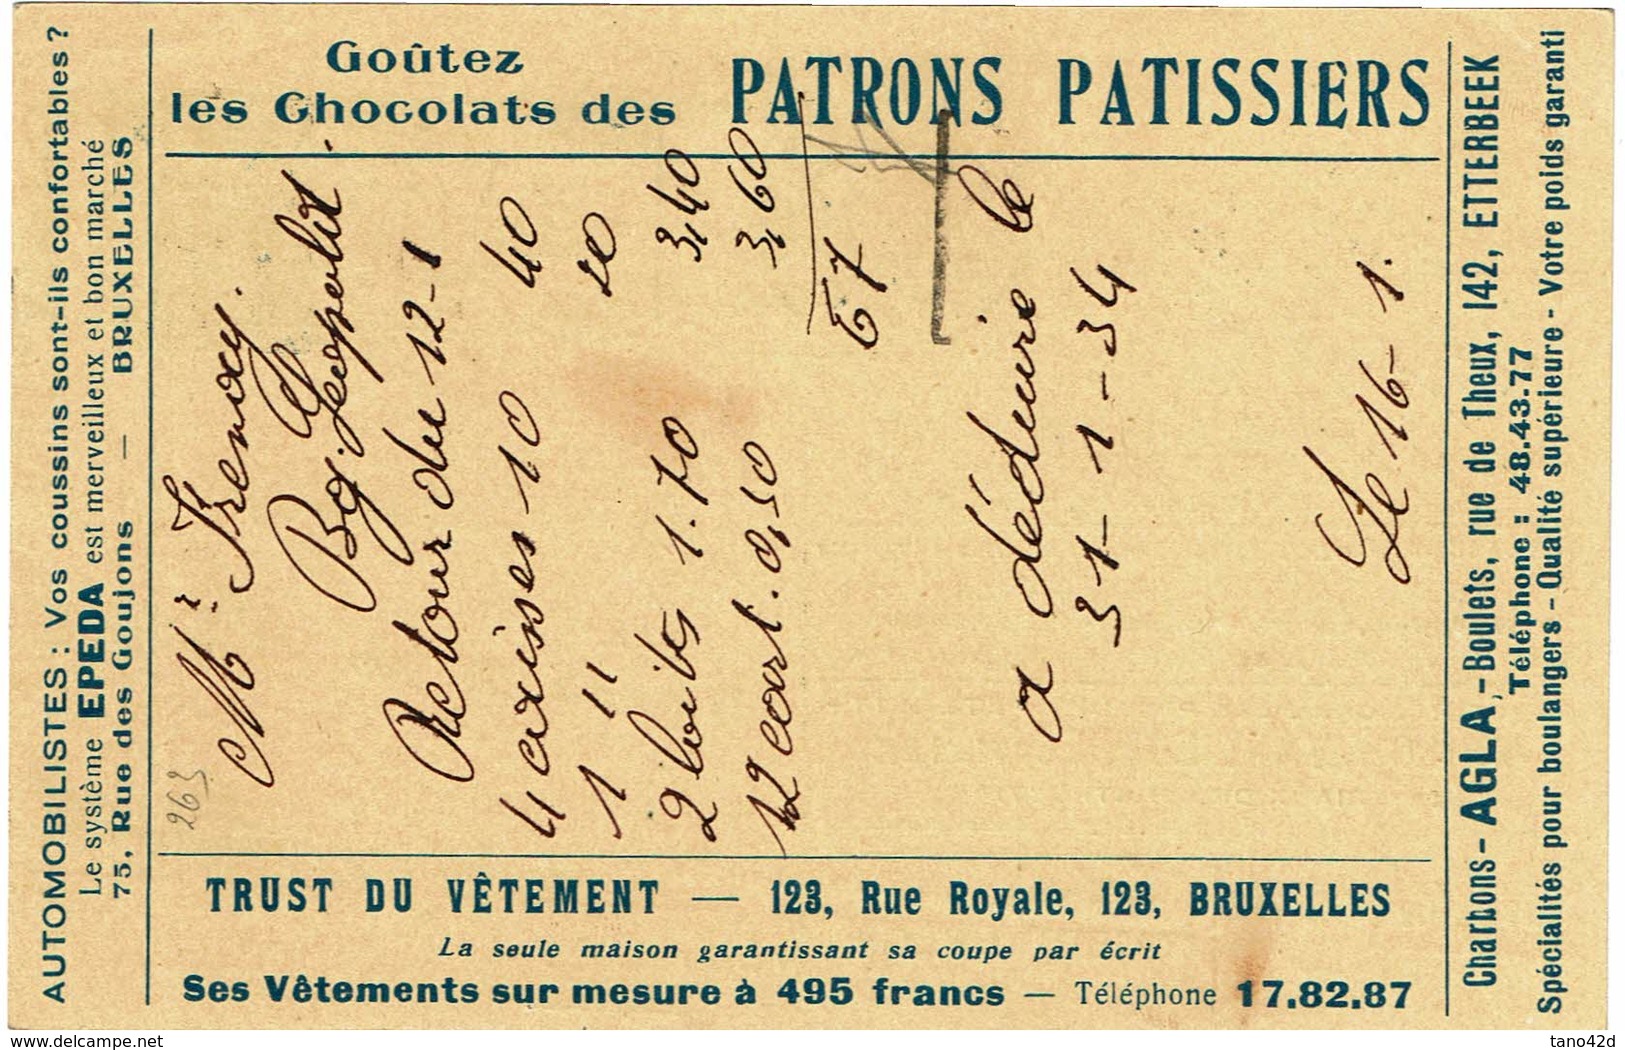 Goûtez
les Chocolats des PATRONS PATISSIERS
AUTOMOBILISTES : Vos coussins sont-ils confortables ?
Le système EPEDA est merveilleux et bon marché
75, Rue des Goujons — BRUXELLES
263
Mr
Bg. Leopold
Retour du 12-1
4 caisses 10 40
1 " 10
2 boites 1.70 3,40
12 cart. 0,30 3,60
57
a déduire le
31-1-34
Le 16-1.
Charbons - AGLA, - Boulets, rue de Theux, 142, ETTERBEEK
Téléphone : 48.43.77
Spécialités pour boulangers - Qualité supérieure - Votre poids garanti
TRUST DU VÊTEMENT — 123, Rue Royale, 123, BRUXELLES
La seule maison garantissant sa coupe par écrit
Ses Vêtements sur mesure à 495 francs — Téléphone 17.82.87
www.delcampe.net
tano42d